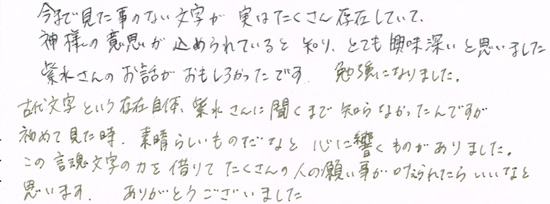 今まで見た事のない文字が 実はたくさん存在していて、
神様の意思が込められていると知り、とても興味深いと思いました
紫水さんのお話がおもしろかったです。 勉強になりました。
古代文字という存在自体、紫水さんに聞くまで知らなかったんですが
初めて見た時、素晴らしいものだなと 心に響くものがありました。
この言魂文字の力を借りて たくさんの人の願い事が叶えられたらいいなと
思います。 ありがとうございました